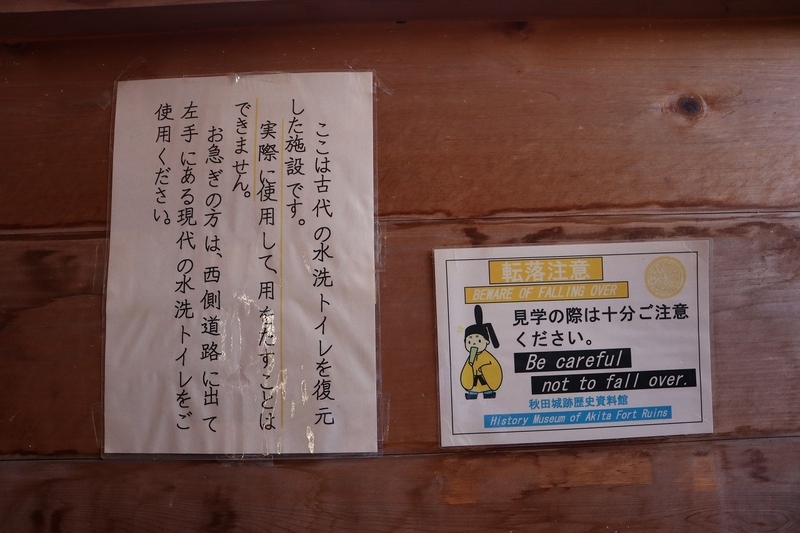 ここは古代の水洗トイレを復元
した施設です。
実際に使用して、用をたすことは
できません。
お急ぎの方は、西側道路に出て
左手にある現代の水洗トイレをご
使用ください。
転落注意
BEWARE OF FALLING OVER
見学の際は十分ご注意
ください。
Be careful
not to fall over.
秋田城跡歴史資料館
History Museum of Akita Fort Ruins